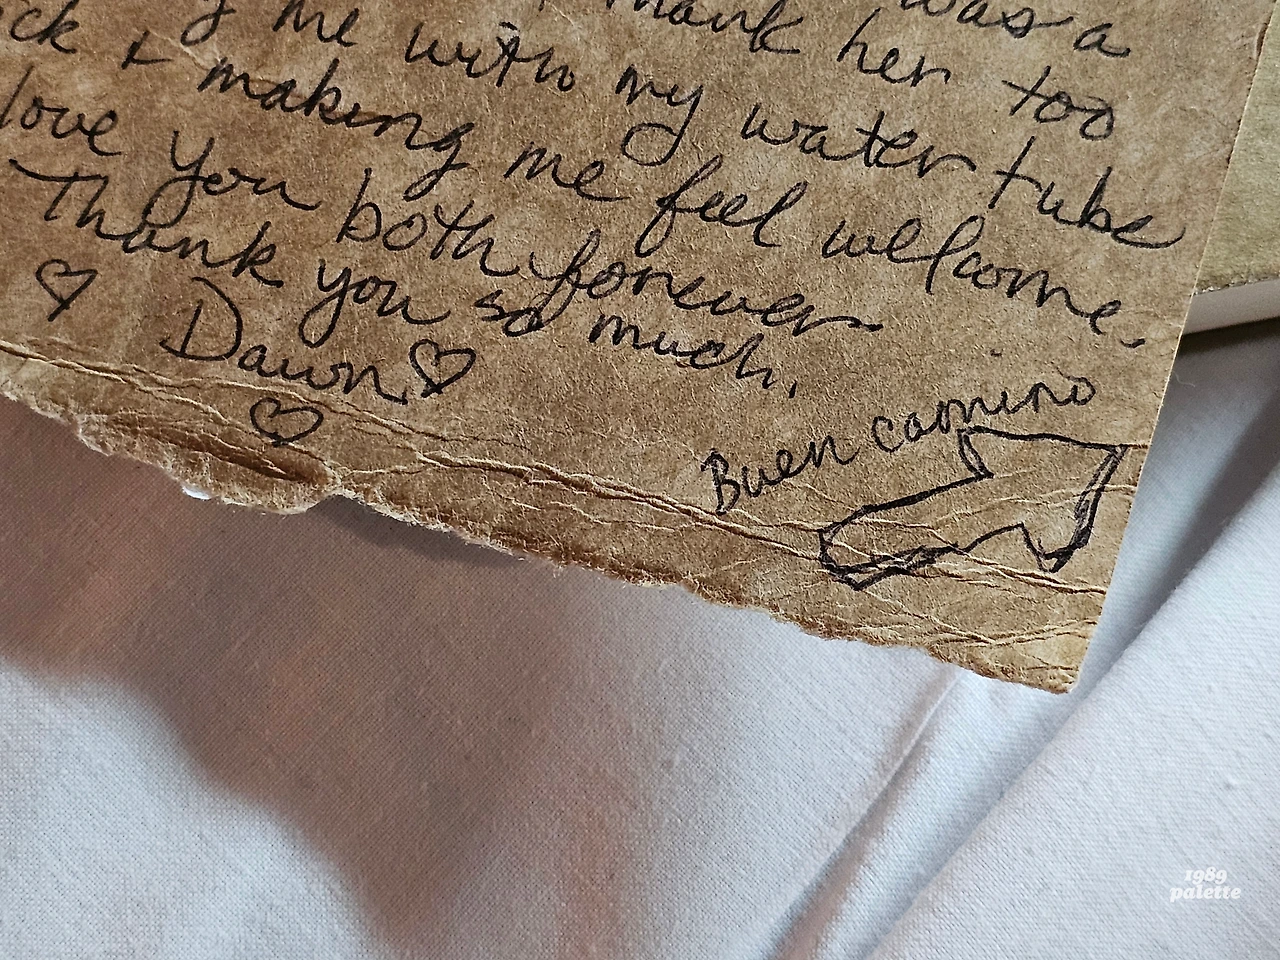 was a
thank her too
me with my water tube
& making me feel welcome.
love you both forever
Thank you so much.
♡ Dawn ♡
♡
Buen camino
1989
palette